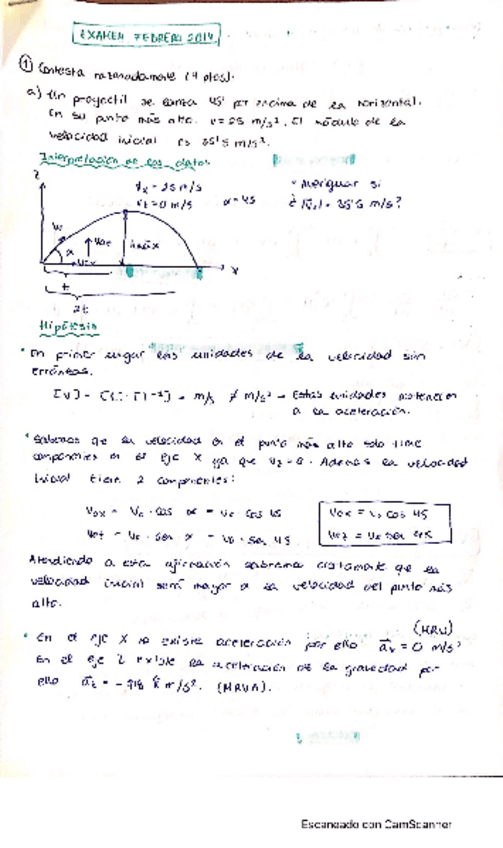 EXAMEN FEBRERO 2014
① Contesta razonadamente (4 ptos).
a) Un proyectil se lanza 45° por encima de la horizontal.
En su punto más alto v = 25 m/s². El módulo de la
velocidad inicial es 35'5 m/s².
Interpretación de los datos
z
Vx = 25 m/s
Vz = 0 m/s
α = 45
• Averiguar si
¿ |V₀| = 35'5 m/s?
V₀
V₀z
α
V₀x
hmáx
x
t
2t
Hipótesis
• En primer lugar las unidades de la velocidad son
erróneas.
[V] = [L]·[T⁻¹] = m/s ≠ m/s² → Estas unidades pertenecen
a la aceleración.
• Sabemos que su velocidad en el punto más alto solo tiene
componentes en el eje X ya que Vz = 0. Además la velocidad
inicial tiene 2 componentes:
V₀x = V₀ · cos α = V₀ cos 45
V₀z = V₀ · sen α = V₀ · sen 45
V₀x = V₀ cos 45
V₀z = V₀ sen 45
Atendiendo a esta afirmación sabremos ciertamente que la
velocidad inicial será mayor a la velocidad del punto más
alto.
• En el eje X no existe aceleración por ello a⃗x = 0 m/s²
(MRU)
En el eje Z existe la aceleración de la gravedad por
ello a⃗z = -9'8 k⃗ m/s². (MRUA).
Escaneado con CamScanner